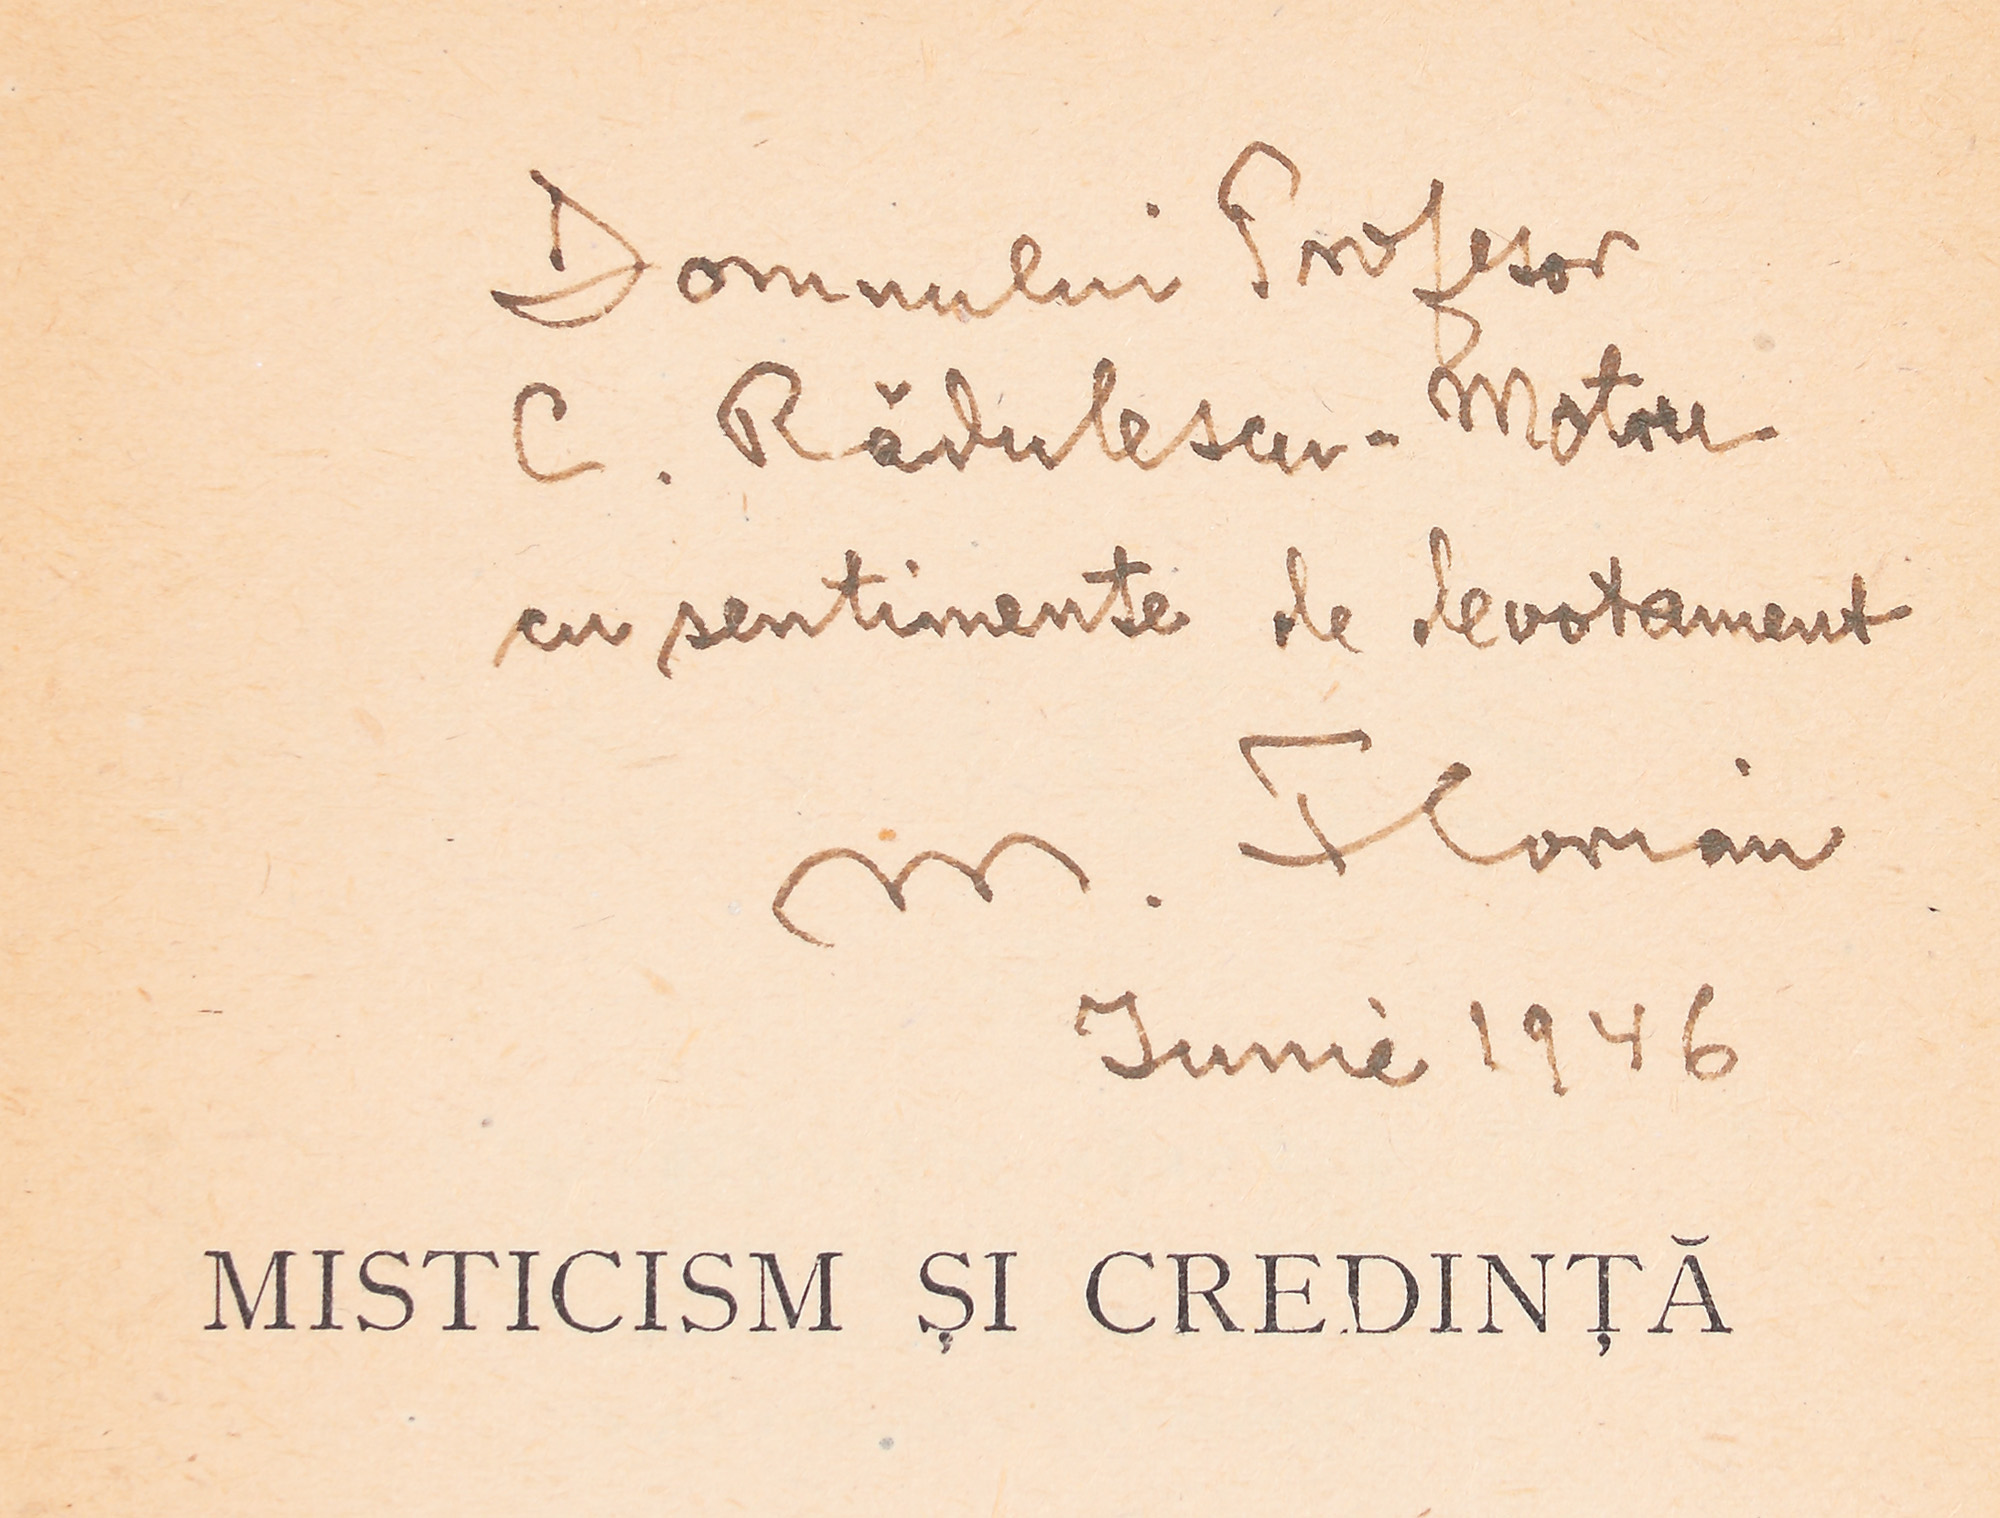 Domnului Profesor
C. Rădulescu-Motru
cu sentimente de devotament
M. Florian
Iunie 1946
MISTICISM ȘI CREDINȚĂ